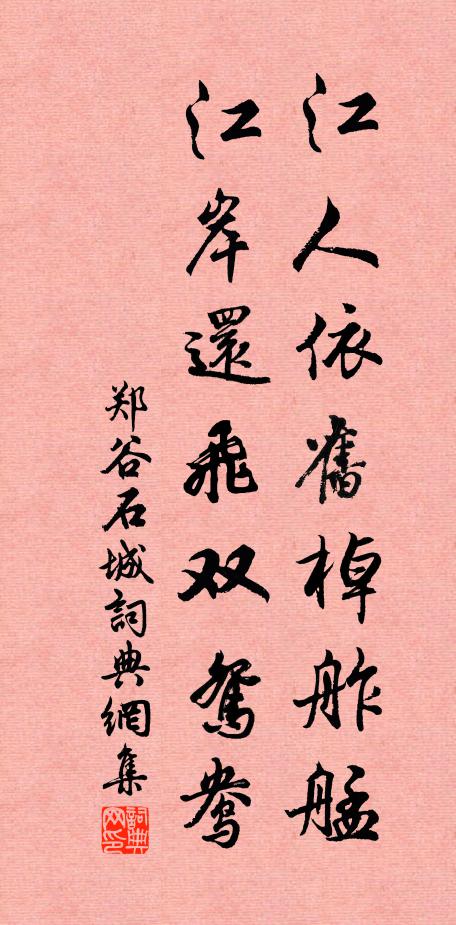 江人依舊棹舴艋
江岸還飛双鴛鴦
郑谷石城詞典網集
詞典網印